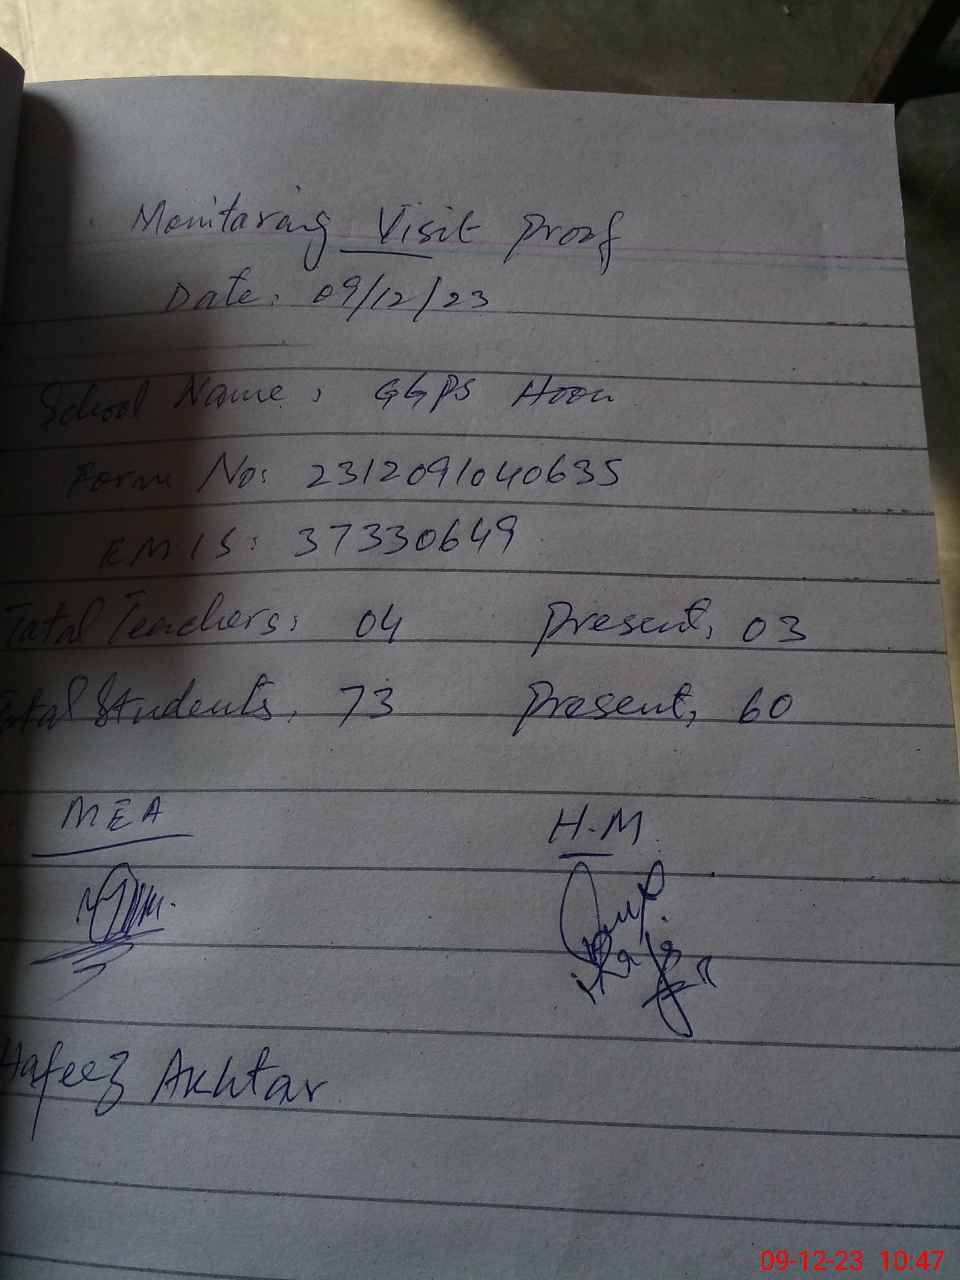 Monitaring Visit Proof
Date: 09/12/23
School Name: GGPS Hoon
Form No: 2312091040635
EMIS: 37330649
Total Teachers: 04 Present, 03
Total Students, 73 Present, 60
MEA H.M
Hafeez Akhtar
09-12-23 10:47